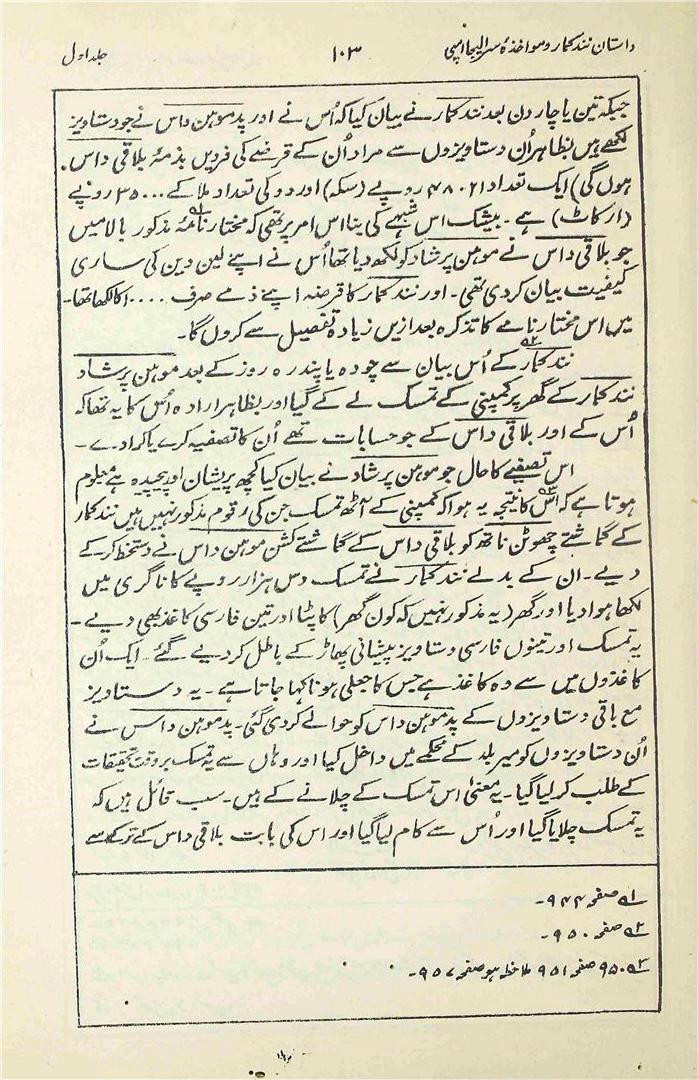 داستان نند کمار و مواخذۂ سر الیجا امپی ۱۰۳ جلد اول
جبکہ تین یا چار دن بعد نند کمار نے بیان کیا کہ اُس نے اور پدموہن داس نے جو دستاویز
لکھے ہیں بظاہر اُن دستاویزوں سے مراد اُن کے قرضے کی فردیں بذمۂ بلاقی داس
ہوں گی) ایک تعداد ۴۸۰۲۱ روپے (سکہ) اور دو کی تعداد ملا کے ۳۵۰۰۰ روپے
(ارکاٹ) ہے۔ بیشک اس شبہے کی بنا اس امر پر تھی کہ مختار نامۂ مذکور بالا میں
جو بلاقی داس نے موہن پرشاد کو لکھ دیا تھا اُس نے اپنے لین دین کی ساری
کیفیت بیان کر دی تھی۔ اور نند کمار کا قرضہ اپنے ذمے صرف ۱۰۰۰۰ کا لکھا تھا۔
میں اس مختار نامے کا تذکرہ بعد ازیں زیادہ تفصیل سے کروں گا۔
نند کمار کے اُس بیان سے چودہ یا پندرہ روز کے بعد موہن پرشاد
نند کمار کے گھر پر کمپنی کے تمسک لے کے گیا اور بظاہر ارادہ اُس کا یہ تھا کہ
اُس کے اور بلاقی داس کے جو حسابات تھے اُن کا تصفیہ کرے یا کرا دے۔
اس تصفیے کا حال جو موہن پرشاد نے بیان کیا کچھ پریشان اور پیچیدہ ہے معلوم
ہوتا ہے کہ اُس کا نتیجہ یہ ہوا کہ کمپنی کے آٹھ تمسک جن کی رقوم مذکور نہیں ہیں نند کمار
کے گماشتے چھوٹن ناتھ کو بلاقی داس کے گماشتے کشن موہن داس نے دستخط کر کے
دیے۔ ان کے بدلے نند کمار نے تمسک دس ہزار روپے کا ناگری میں
لکھا ہوا دیا اور گھر (یہ مذکور نہیں کہ کون گھر) کا پٹا اور تین فارسی کاغذ بھی دیے۔
یہ تمسک اور تینوں فارسی دستاویز پیشانی پھاڑ کے باطل کر دیے گئے۔ ایک اُن
کاغذوں میں سے وہ کاغذ ہے جس کا جعلی ہونا کہا جاتا ہے۔ یہ دستاویز
مع باقی دستاویزوں کے پدموہن داس کو حوالے کر دی گئی۔ پدموہن داس نے
اُن دستاویزوں کو میر بلد کے محکمے میں داخل کیا اور وہاں سے یہ تمسک بر وقت تحقیقات
کے طلب کر لیا گیا۔ یہ معنیٰ اس تمسک کے چلانے کے ہیں۔ سب قائل ہیں کہ
یہ تمسک چلایا گیا اور اُس سے کام لیا گیا اور اس کی بابت بلاقی داس کے ترکے سے
۱؎ صفحہ ۹۴۴۔
۲؎ صفحہ ۹۵۰۔
۳؎ ۹۵۰ صفحہ ۹۵۱ ملاحظہ ہو صفحہ ۹۵۷۔